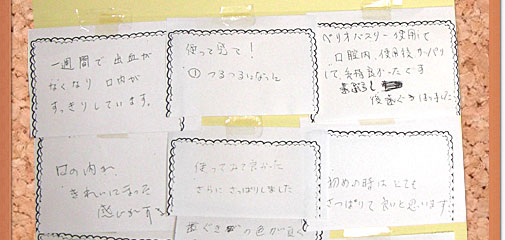 一週間で出血が
なくなり口内が
すっきりしています。
使って見て!
① つるつるになった
ペリオバスター使用して
口腔内、使用後サッパリ
して、気持良かったです
口の内が、
きれいになった
感じがする
使ってみて良かった
さらにさっぱりしました
歯ぐきの色が良く
初めの時はとても
さっぱりして良いと思います